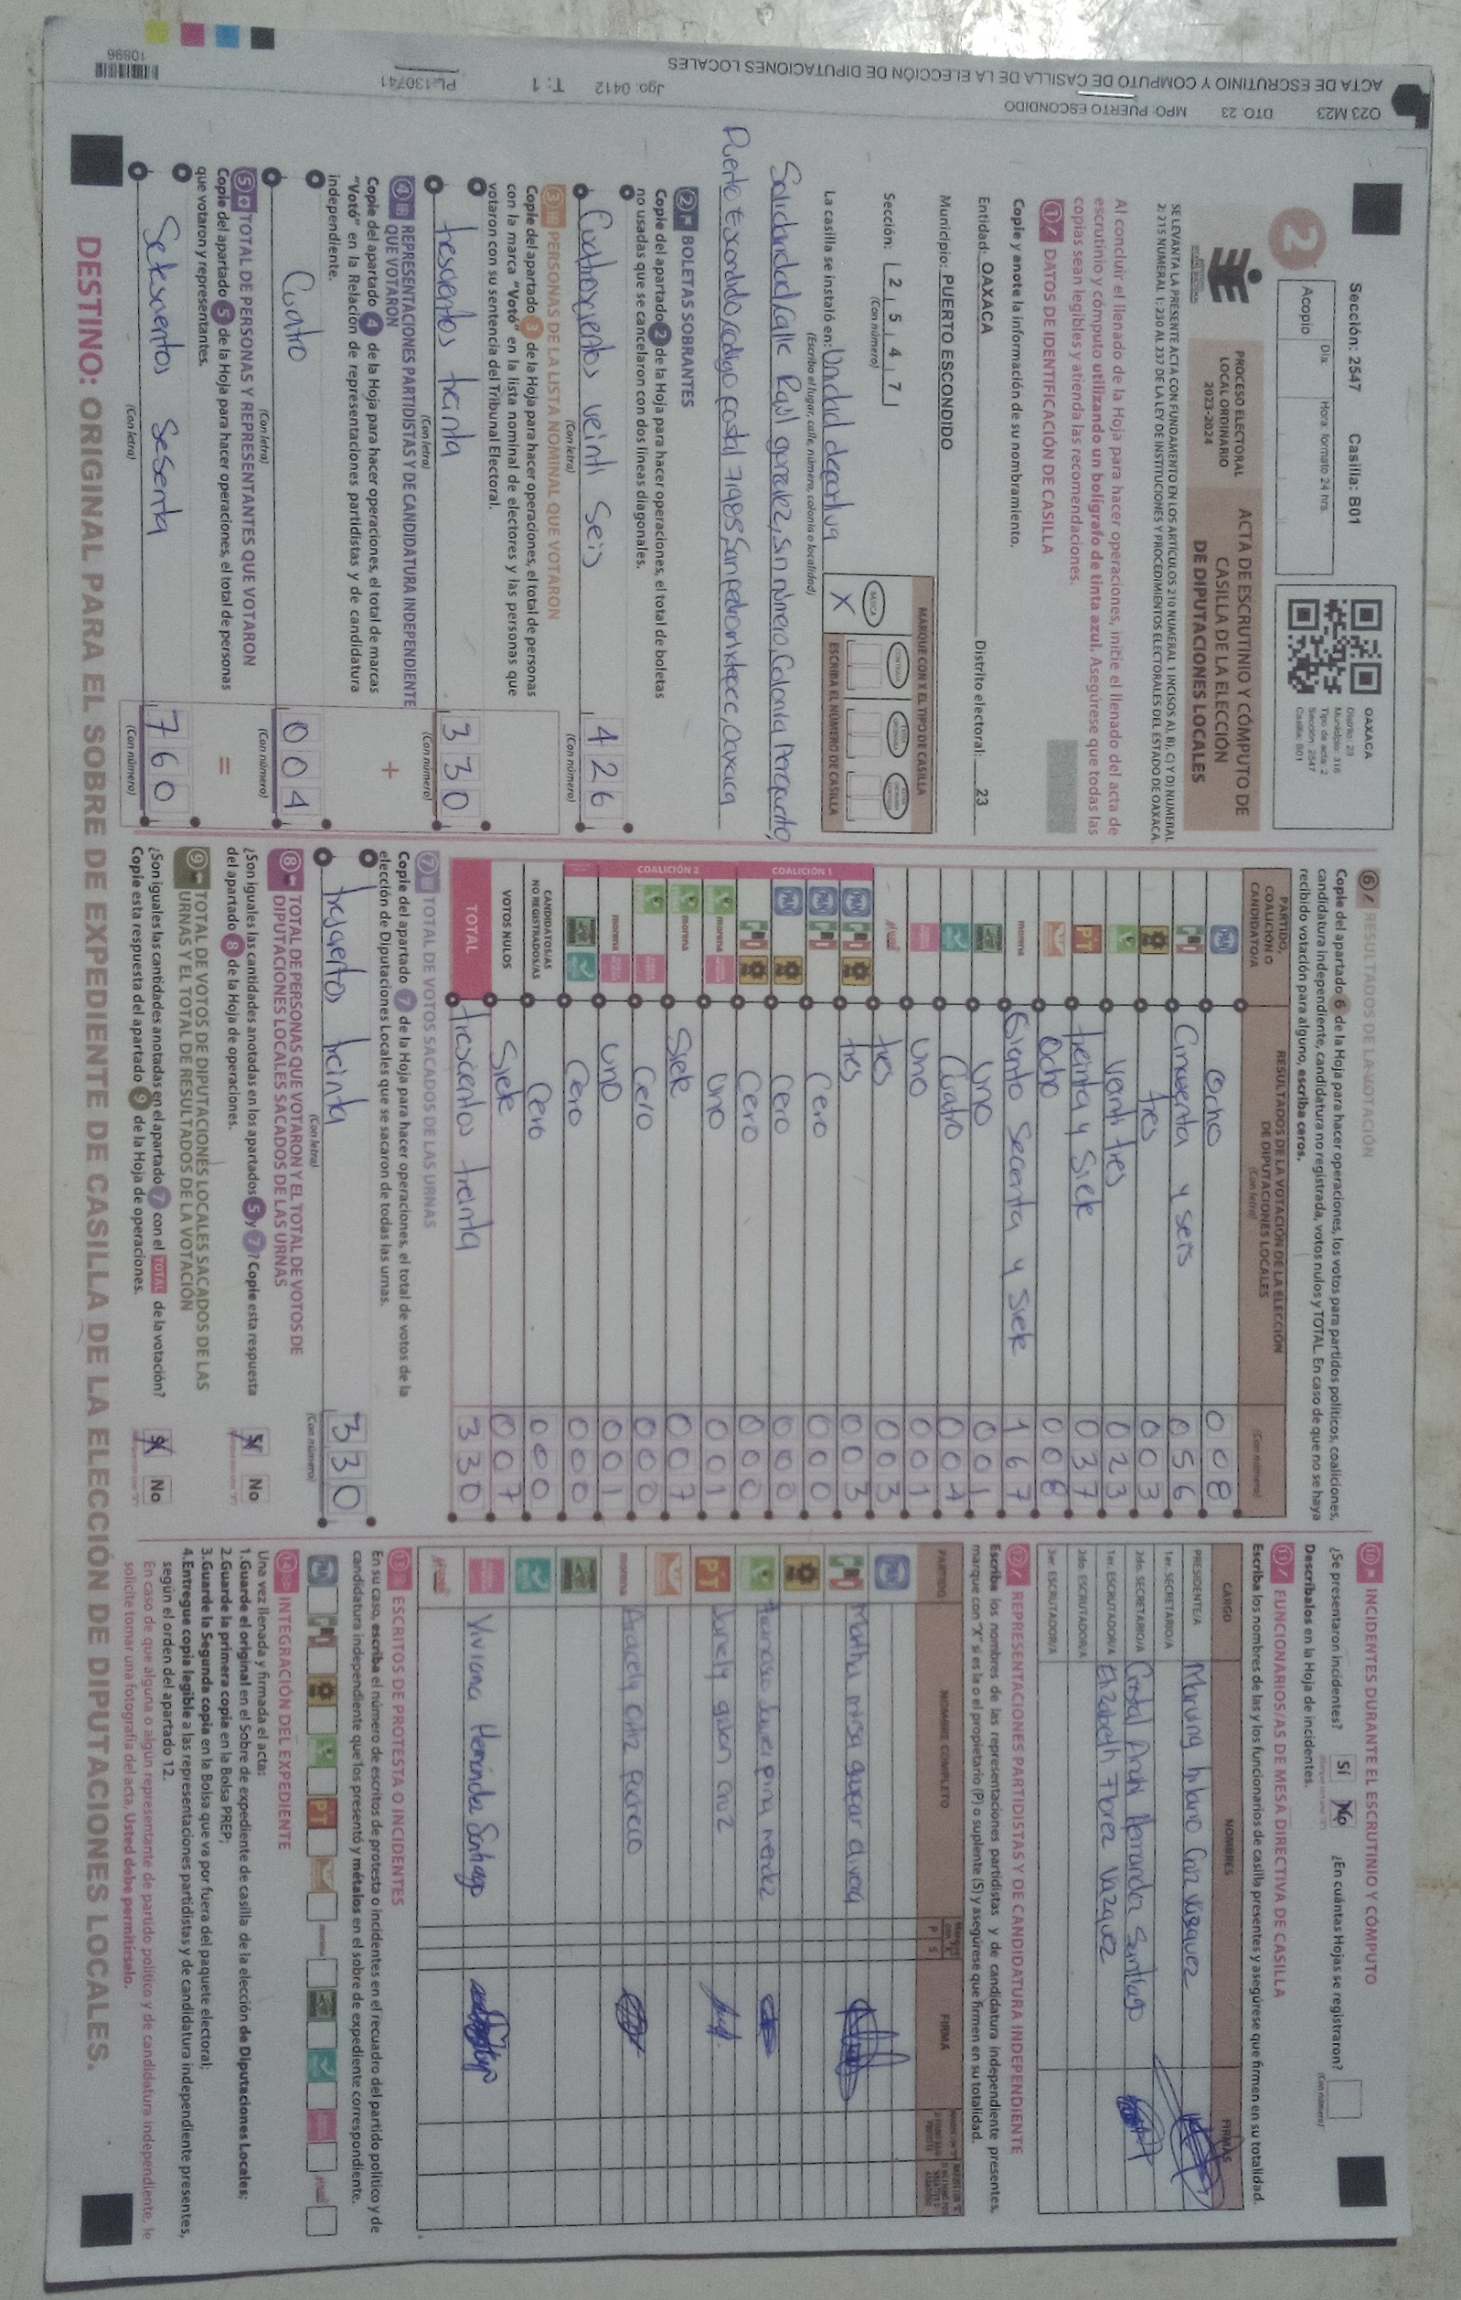 Sección: 2547 Casilla: B01
Acopio Día: Hora: formato 24 hrs.
2
OAXACA
Distrito: 23
Municipio: 318
Tipo de acta: 2
Sección: 2547
Casilla: B01
PROCESO ELECTORAL
LOCAL ORDINARIO
2023-2024
ACTA DE ESCRUTINIO Y CÓMPUTO DE
CASILLA DE LA ELECCIÓN
DE DIPUTACIONES LOCALES
SE LEVANTA LA PRESENTE ACTA CON FUNDAMENTO EN LOS ARTÍCULOS 210 NUMERAL 1 INCISOS A), B), C) Y D) NUMERAL
2; 215 NUMERAL 1; 230 AL 237 DE LA LEY DE INSTITUCIONES Y PROCEDIMIENTOS ELECTORALES DEL ESTADO DE OAXACA.
Al concluir el llenado de la Hoja para hacer operaciones, inicie el llenado del acta de
escrutinio y cómputo utilizando un bolígrafo de tinta azul. Asegúrese que todas las
copias sean legibles y atienda las recomendaciones.
1 DATOS DE IDENTIFICACIÓN DE CASILLA
Copie y anote la información de su nombramiento.
Entidad: OAXACA Distrito electoral: 23
Municipio: PUERTO ESCONDIDO
Sección: 2 5 4 7
(Con número)
MARQUE CON X EL TIPO DE CASILLA
BÁSICA
X
ESCRIBA EL NÚMERO DE CASILLA
La casilla se instaló en: Unidad deportiva
(Escriba el lugar, calle, número, colonia o localidad)
Solidaridad, calle Raúl gonzalez, sin número, Colonia Aeropuerto,
Puerto Escondido, codigo postal 71985, San pedro mixtepec, Oaxaca
2 BOLETAS SOBRANTES
Copie del apartado 2 de la Hoja para hacer operaciones, el total de boletas
no usadas que se cancelaron con dos líneas diagonales.
Cuatrocientos veinti seis 426
(Con letra) (Con número)
3 PERSONAS DE LA LISTA NOMINAL QUE VOTARON
Copie del apartado 3 de la Hoja para hacer operaciones, el total de personas
con la marca "Votó" en la lista nominal de electores y las personas que
votaron con su sentencia del Tribunal Electoral.
trescientos treinta 330
(Con letra) (Con número)
4 REPRESENTACIONES PARTIDISTAS Y DE CANDIDATURA INDEPENDIENTE
QUE VOTARON
Copie del apartado 4 de la Hoja para hacer operaciones, el total de marcas
"Votó" en la Relación de representaciones partidistas y de candidatura
independiente.
+
Cuatro 004
(Con letra) (Con número)
5 TOTAL DE PERSONAS Y REPRESENTANTES QUE VOTARON
Copie del apartado 5 de la Hoja para hacer operaciones, el total de personas
que votaron y representantes.
=
Setescientos sesenta 760
(Con letra) (Con número)
6 RESULTADOS DE LA VOTACIÓN
Copie del apartado 6 de la Hoja para hacer operaciones, los votos para partidos políticos, coaliciones,
candidatura independiente, candidatura no registrada, votos nulos y TOTAL. En caso de que no se haya
recibido votación para alguno, escriba ceros.
PARTIDO,
COALICIÓN O
CANDIDATO/A
RESULTADOS DE LA VOTACIÓN DE LA ELECCIÓN
DE DIPUTACIONES LOCALES
(Con letra) (Con número)
PAN ocho 008
PRI Cincuenta y seis 056
tres 003
Venti tres 023
PT treinta y Siete 037
ocho 008
morena Ciento Secenta y Siete 167
Uno 001
Cuatro 004
Uno 001
tres 003
COALICIÓN 1
PAN PRI tres 003
PAN PRI Cero 000
PAN Cero 000
PRI Cero 000
COALICIÓN 2
morena Uno 001
morena Siete 007
Cero 000
morena uno 001
Cero 000
CANDIDATOS/AS
NO REGISTRADOS/AS Cero 000
VOTOS NULOS Siete 007
TOTAL trescientos treinta 330
7 TOTAL DE VOTOS SACADOS DE LAS URNAS
Copie del apartado 7 de la Hoja para hacer operaciones, el total de votos de la
elección de Diputaciones Locales que se sacaron de todas las urnas.
treinta 330
(Con letra) (Con número)
8 TOTAL DE PERSONAS QUE VOTARON Y EL TOTAL DE VOTOS DE
DIPUTACIONES LOCALES SACADOS DE LAS URNAS
¿Son iguales las cantidades anotadas en los apartados 5 y 7? Copie esta respuesta
del apartado 8 de la Hoja de operaciones. Sí No
9 TOTAL DE VOTOS DE DIPUTACIONES LOCALES SACADOS DE LAS
URNAS Y EL TOTAL DE RESULTADOS DE LA VOTACIÓN
¿Son iguales las cantidades anotadas en el apartado 7 con el TOTAL de la votación?
Copie esta respuesta del apartado 9 de la Hoja de operaciones. Sí No
10 INCIDENTES DURANTE EL ESCRUTINIO Y CÓMPUTO
¿Se presentaron incidentes? Sí No ¿En cuántas Hojas se registraron?
(Con número)
Descríbalos en la Hoja de incidentes.
11 FUNCIONARIOS/AS DE MESA DIRECTIVA DE CASILLA
Escriba los nombres de las y los funcionarios de casilla presentes y asegúrese que firmen en su totalidad.
CARGO NOMBRES FIRMAS
PRESIDENTE/A hilario Cruz Vasquez
1er. SECRETARIO/A
2do. SECRETARIO/A Cristal Anahi Hernandez Santiago
1er. ESCRUTADOR/A Elizabeth Florez Vazquez
2do. ESCRUTADOR/A
3er. ESCRUTADOR/A
12 REPRESENTACIONES PARTIDISTAS Y DE CANDIDATURA INDEPENDIENTE
Escriba los nombres de las representaciones partidistas y de candidatura independiente presentes,
marque con "X" si es la o el propietario (P) o suplente (S) y asegúrese que firmen en su totalidad.
PARTIDO NOMBRE COMPLETO P S FIRMA
PAN
PRI Martha
Francisco Javier pina mendez
PT Janely gabon cruz
morena Aracely Ortiz Pacheco
Viviana Hernández Santiago
13 ESCRITOS DE PROTESTA O INCIDENTES
En su caso, escriba el número de escritos de protesta o incidentes en el recuadro del partido político y de
candidatura independiente que los presentó y métalos en el sobre de expediente correspondiente.
PAN PRI PT morena
14 INTEGRACIÓN DEL EXPEDIENTE
Una vez llenada y firmada el acta:
1.Guarde el original en el Sobre de expediente de casilla de la elección de Diputaciones Locales;
2.Guarde la primera copia en la Bolsa PREP;
3.Guarde la Segunda copia en la Bolsa que va por fuera del paquete electoral;
4.Entregue copia legible a las representaciones partidistas y de candidatura independiente presentes,
según el orden del apartado 12.
En caso de que alguna o algún representante de partido político y de candidatura independiente, le
solicite tomar una fotografía del acta, Usted debe permitírselo.
DESTINO: ORIGINAL PARA EL SOBRE DE EXPEDIENTE DE CASILLA DE LA ELECCIÓN DE DIPUTACIONES LOCALES.
O23 M23 DTO. 23 MPO: PUERTO ESCONDIDO
ACTA DE ESCRUTINIO Y COMPUTO DE CASILLA DE LA ELECCIÓN DE DIPUTACIONES LOCALES
Jgo: 0412 T: 1 PL:130741
10896